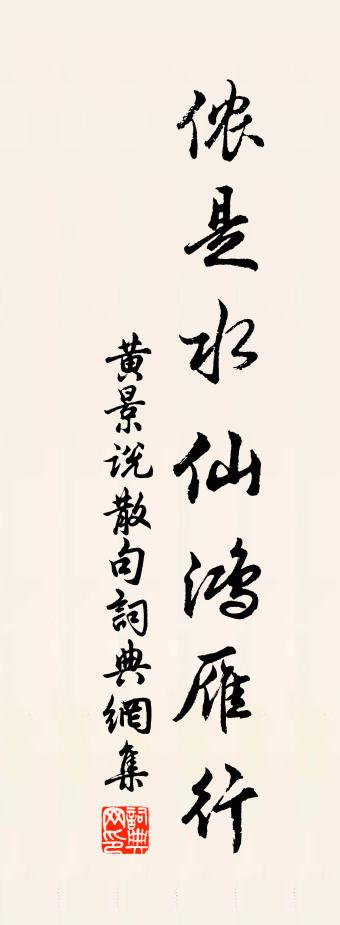 侬是水仙鸿雁行
黄景说散句詞典網集
詞典网印